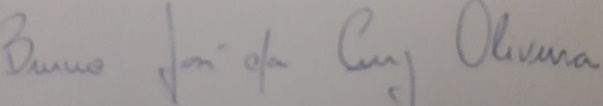 Bruno José da Cruz Oliveira